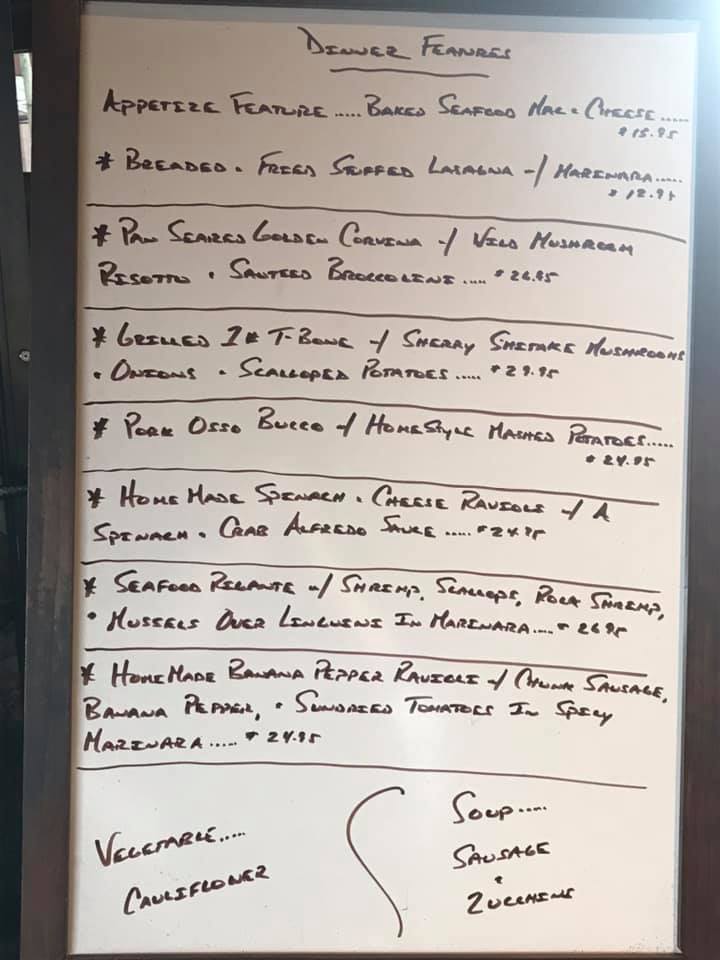 DINNER FEATURES
APPETIZE FEATURE.....BAKED SEAFOOD MAC & CHEESE.....
$15.95
* BREADED & FRIED STUFFED LASAGNA w/ MARINARA.....
$12.95
* PAN SEARED GOLDEN CORVINA w/ WILD MUSHROOM
RISOTTO & SAUTEED BROCCOLINI.....$26.95
* GRILLED 1# T-BONE w/ SHERRY SHITAKE MUSHROOMS
& ONIONS & SCALLOPED POTATOES.....$29.95
* PORK OSSO BUCCO w/ HOMESTYLE MASHED POTATOES.....
$24.95
* HOMEMADE SPINACH & CHEESE RAVIOLI w/ A
SPINACH & CRAB ALFREDO SAUCE.....$24.95
* SEAFOOD RIGANTE w/ SHRIMP, SCALLOPS, ROCK SHRIMP,
& MUSSELS OVER LINGUINI IN MARINARA....$26.95
* HOMEMADE BANANA PEPPER RAVIOLI w/ CHUNK SAUSAGE,
BANANA PEPPER, & SUNDRIED TOMATOES IN SPICY
MARINARA.....$24.95
VEGETABLE.....
CAULIFLOWER
SOUP.....
SAUSAGE
&
ZUCCHINI